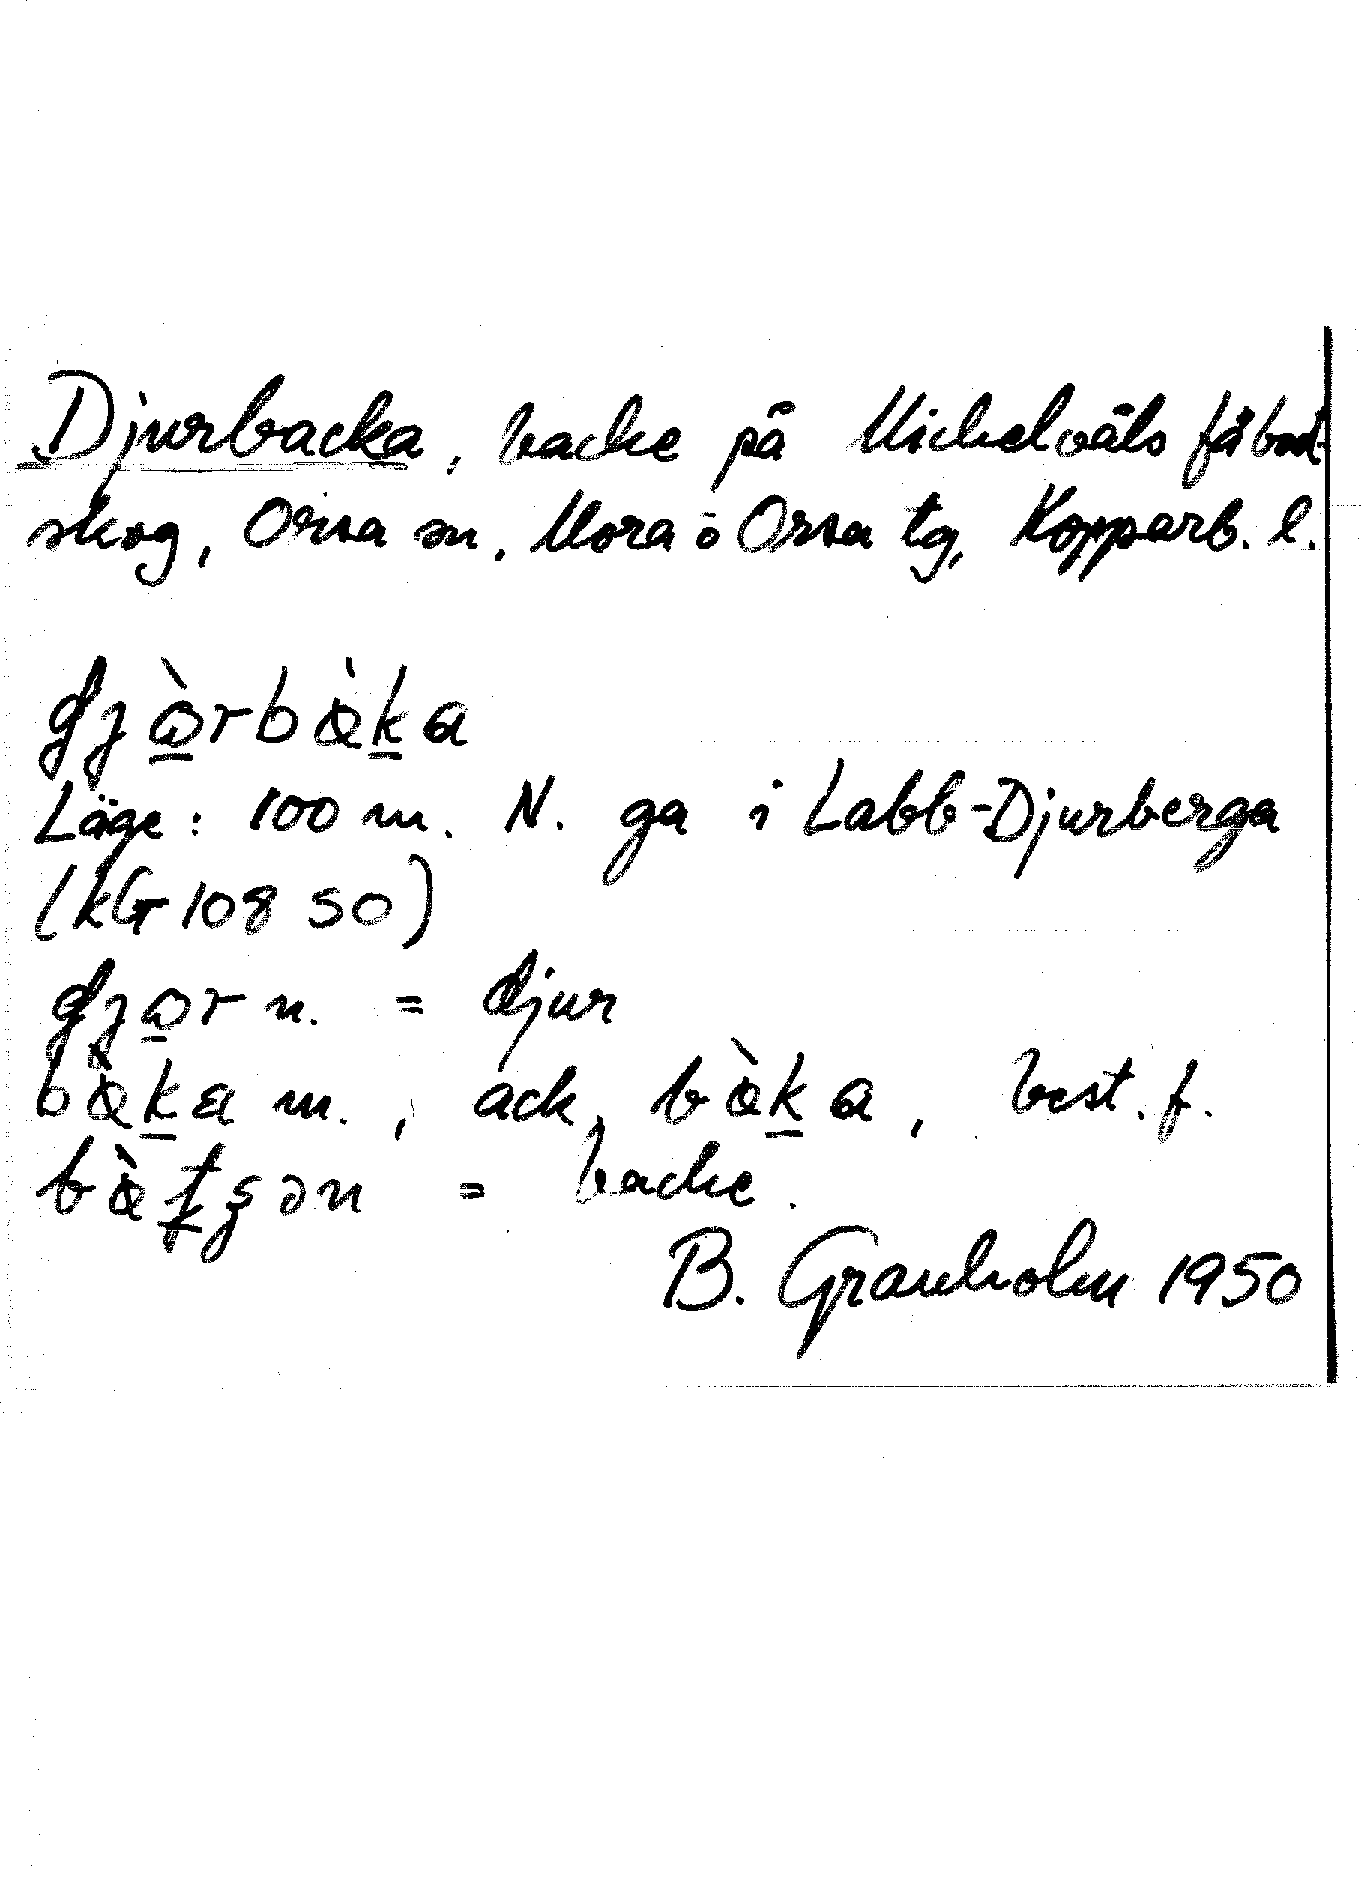 Djurbacka, backe på Mickelvåls fäbod-
skog, Orsa sn. Mora o Orsa tg, Kopparb. l.
Läge: 100 m. N. ga i Labb-Djurberga
(kG 108 50)
n. = djur
m., ack. bàka, best. f.
= backe.
B. Granholm 1950